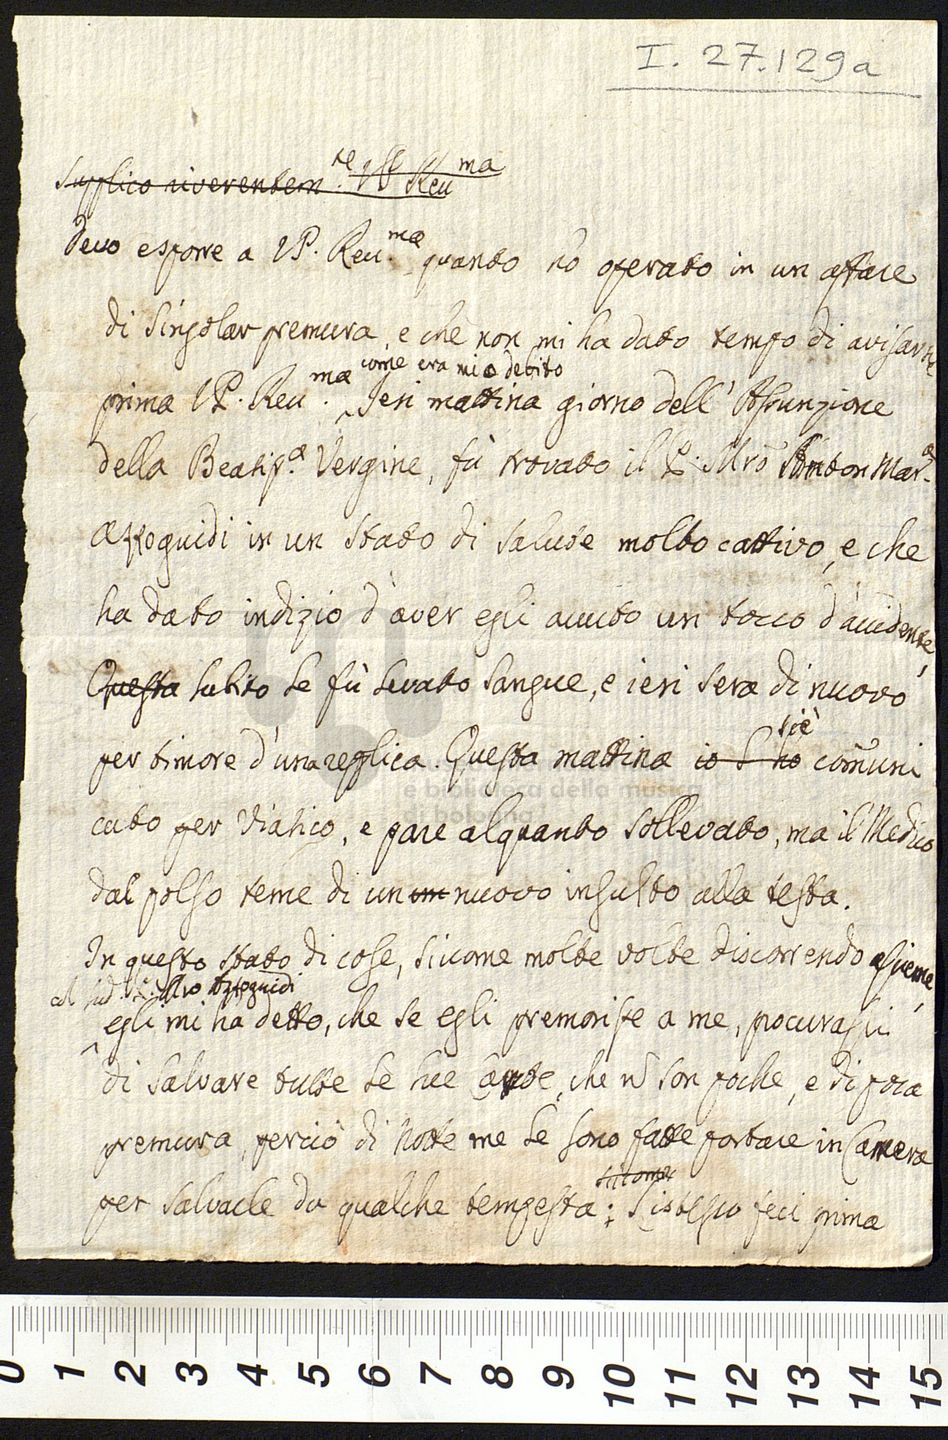 I. 27.129a
Supplico riverentem.te VP Reu.ma
Devo esporre a VP. Reu.ma quando hò operato in un affare
di singolar premura, e che non mi ha dato tempo di avisarne
come era mio debito
prima VP. Reu.ma Jeri mattina giorno dell' Assunzione
della Beatiss.a Vergine, fù trovato il P. Mrõ Anton Mar.a
Azzoguidi in un stato di salute molto cattivo, e che
ha dato indizio d'aver egli avuto un tocco d'accidente,
Questa subito le fù levato sangue, e ieri sera di nuovo
per timore d'una replica. Questa mattina io l' hò si è comuni
cato per Viatico, e pare alquanto sollevato, ma il Medico
dal polso teme di un un nuovo insulto alla testa.
In questo stato di cose, siccome molte volte discorrendo assieme,
col sud. P. Mro Azzoguidi
egli mi ha detto, che se egli premorisse a me, procurassi
di salvare tutte le sue Carte, che ñ son poche, e di poca
premura, perciò di Notte me le sono fatte portare in Camera
per salvarle da qualche tempesta: siccome L'istesso feci prima
e biblioteca della musica
di bologna
0 1 2 3 4 5 6 7 8 9 10 11 12 13 14 15